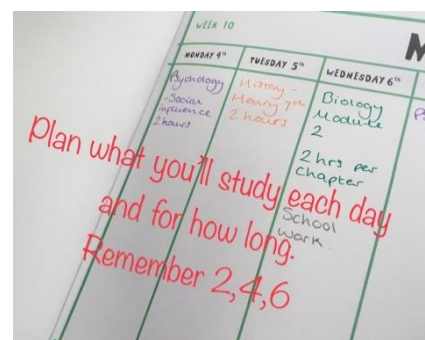 WEEK 10
M
MONDAY 4th
TUESDAY 5th
WEDNESDAY 6th
Psychology
-Social
influence
2 hours
History -
Henry 7th
2 hours
Biology
Module
2
2 hrs per
chapter
School
work.
P
Plan what you'll study each day
and for how long.
Remember 2,4,6